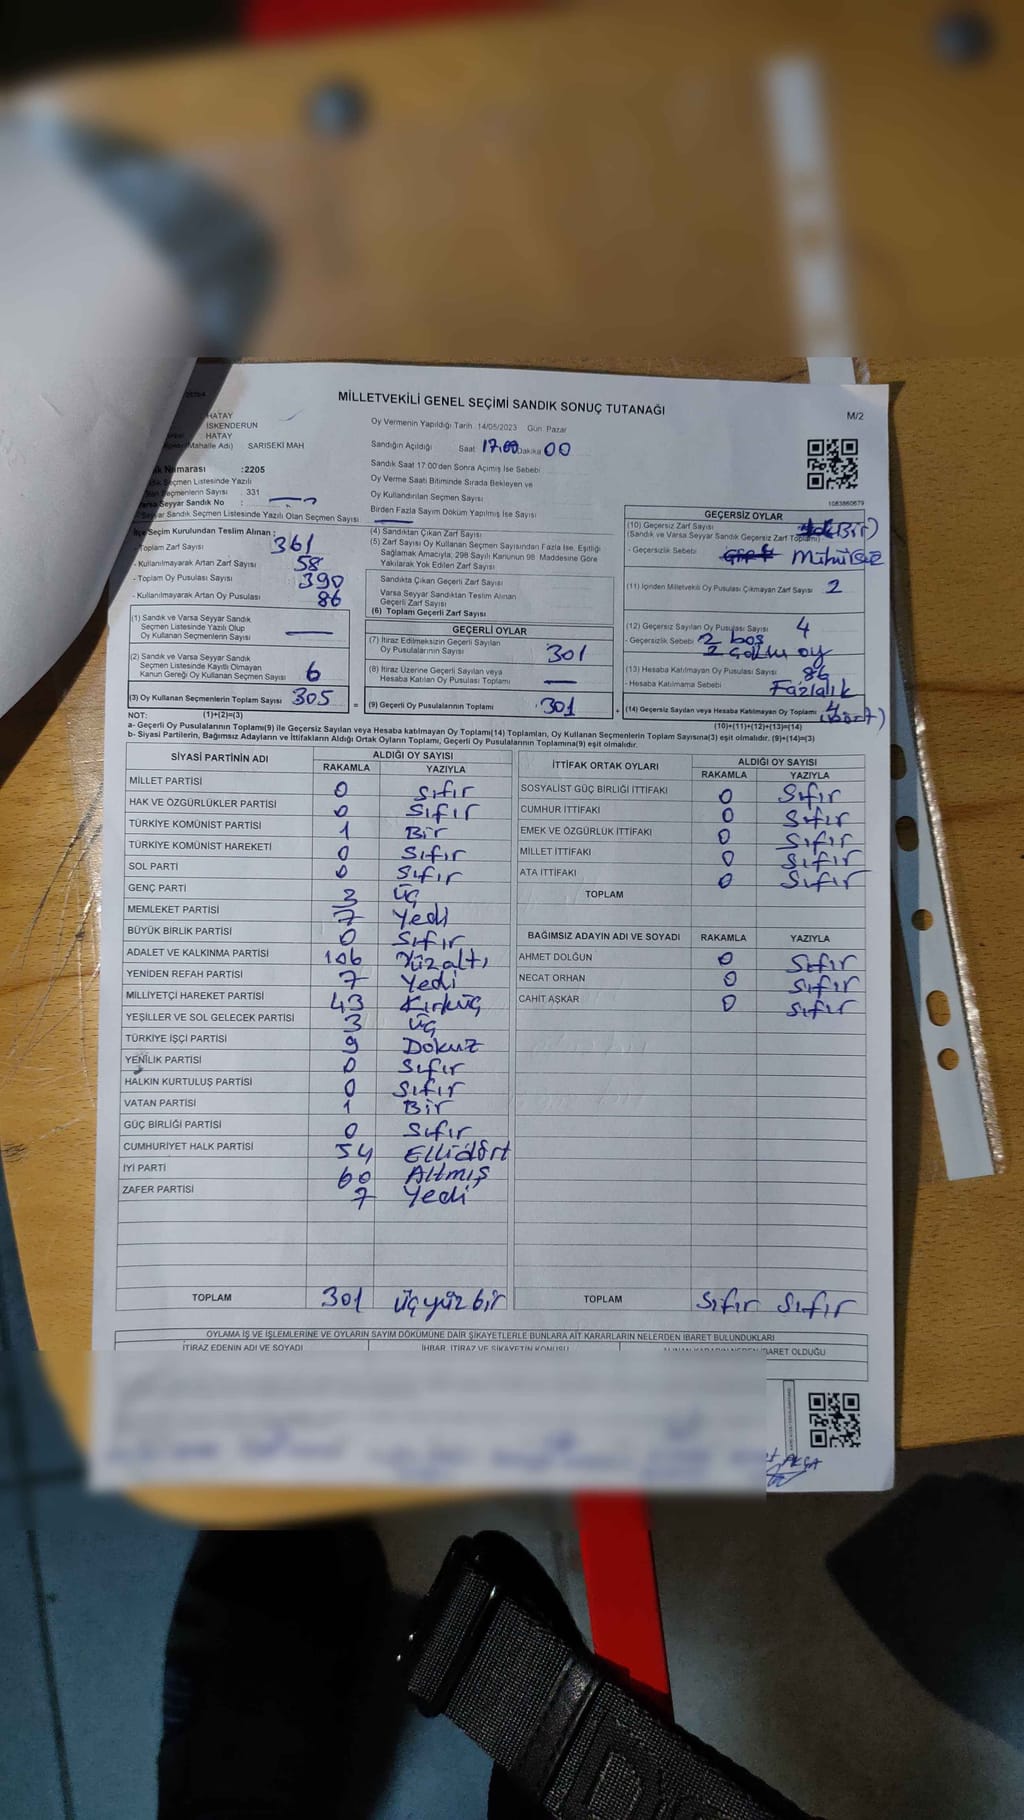 MİLLETVEKİLİ GENEL SEÇİMİ SANDIK SONUÇ TUTANAĞI
M/2
HATAY
İSKENDERUN
HATAY
Mahalle Adı) SARISEKİ MAH
Numarası :2205
Seçmen Listesinde Yazılı
Seçmenlerin Sayısı : 331
Seyyar Sandık No :
Seyyar Sandık Seçmen Listesinde Yazılı Olan Seçmen Sayısı
Oy Vermenin Yapıldığı Tarih : 14/05/2023 Gün: Pazar
Sandığın Açıldığı Saat 17.00 Dakika 00
Sandık Saat 17:00'den Sonra Açımış İse Sebebi
Oy Verme Saati Bitiminde Sırada Bekleyen ve
Oy Kullandırılan Seçmen Sayısı
Birden Fazla Sayım Döküm Yapılmış İse Sayısı
1083860679
İlçe Seçim Kurulundan Teslim Alınan :
- Toplam Zarf Sayısı 361
- Kullanılmayarak Artan Zarf Sayısı 58
- Toplam Oy Pusulası Sayısı 390
- Kullanılmayarak Artan Oy Pusulası 86
(1) Sandık ve Varsa Seyyar Sandık
Seçmen Listesinde Yazılı Olup
Oy Kullanan Seçmenlerin Sayısı
(2) Sandık ve Varsa Seyyar Sandık
Seçmen Listesinde Kayıtlı Olmayan
Kanun Gereği Oy Kullanan Seçmen Sayısı 6
(3) Oy Kullanan Seçmenlerin Toplam Sayısı 305
(4) Sandıktan Çıkan Zarf Sayısı
(5) Zarf Sayısı Oy Kullanan Seçmen Sayısından Fazla İse, Eşitliği
Sağlamak Amacıyla, 298 Sayılı Kanunun 98. Maddesine Göre
Yakılarak Yok Edilen Zarf Sayısı
Sandıkta Çıkan Geçerli Zarf Sayısı
Varsa Seyyar Sandıktan Teslim Alınan
Geçerli Zarf Sayısı
(6) Toplam Geçerli Zarf Sayısı
GEÇERLİ OYLAR
(7) İtiraz Edilmeksizin Geçerli Sayılan
Oy Pusulalarının Sayısı 301
(8) İtiraz Üzerine Geçerli Sayılan veya
Hesaba Katılan Oy Pusulası Toplamı
(9) Geçerli Oy Pusulalarının Toplamı 301
GEÇERSİZ OYLAR
(10) Geçersiz Zarf Sayısı (Bir)
(Sandık ve Varsa Seyyar Sandık Geçersiz Zarf Toplamı)
- Geçersizlik Sebebi Mühürsüz
(11) İçinden Milletvekili Oy Pusulası Çıkmayan Zarf Sayısı 2
(12) Geçersiz Sayılan Oy Pusulası Sayısı 4
- Geçersizlik Sebebi 2 boş
2 oy
(13) Hesaba Katılmayan Oy Pusulası Sayısı 86
- Hesaba Katılmama Sebebi Fazlalık
(14) Geçersiz Sayılan veya Hesaba Katılmayan Oy Toplamı 4 (Dört)
NOT: (1)+(2)=(3)
(10)+(11)+(12)+(13)=(14)
a- Geçerli Oy Pusulalarının Toplamı(9) ile Geçersiz Sayılan veya Hesaba katılmayan Oy Toplamı(14) Toplamları, Oy Kullanan Seçmenlerin Toplam Sayısına(3) eşit olmalıdır. (9)+(14)=(3)
b- Siyasi Partilerin, Bağımsız Adayların ve İttifakların Aldığı Ortak Oyların Toplamı, Geçerli Oy Pusulalarının Toplamına(9) eşit olmalıdır.
SİYASİ PARTİNİN ADI ALDIĞI OY SAYISI
RAKAMLA YAZIYLA
MİLLET PARTİSİ 0 Sıfır
HAK VE ÖZGÜRLÜKLER PARTİSİ 0 Sıfır
TÜRKİYE KOMÜNİST PARTİSİ 1 Bir
TÜRKİYE KOMÜNİST HAREKETİ 0 Sıfır
SOL PARTİ 0 Sıfır
GENÇ PARTİ 3 Üç
MEMLEKET PARTİSİ 7 Yedi
BÜYÜK BİRLİK PARTİSİ 0 Sıfır
ADALET VE KALKINMA PARTİSİ 106 Yüzaltı
YENİDEN REFAH PARTİSİ 7 Yedi
MİLLİYETÇİ HAREKET PARTİSİ 43 Kırküç
YEŞİLLER VE SOL GELECEK PARTİSİ 3 Üç
TÜRKİYE İŞÇİ PARTİSİ 9 Dokuz
YENİLİK PARTİSİ 0 Sıfır
HALKIN KURTULUŞ PARTİSİ 0 Sıfır
VATAN PARTİSİ 1 Bir
GÜÇ BİRLİĞİ PARTİSİ 0 Sıfır
CUMHURİYET HALK PARTİSİ 54 Ellidört
İYİ PARTİ 60 Altmış
ZAFER PARTİSİ 7 Yedi
TOPLAM 301 Üçyüzbir
İTTİFAK ORTAK OYLARI ALDIĞI OY SAYISI
RAKAMLA YAZIYLA
SOSYALİST GÜÇ BİRLİĞİ İTTİFAKI 0 Sıfır
CUMHUR İTTİFAKI 0 Sıfır
EMEK VE ÖZGÜRLÜK İTTİFAKI 0 Sıfır
MİLLET İTTİFAKI 0 Sıfır
ATA İTTİFAKI 0 Sıfır
TOPLAM
BAĞIMSIZ ADAYIN ADI VE SOYADI RAKAMLA YAZIYLA
AHMET DOLĞUN 0 Sıfır
NECAT ORHAN 0 Sıfır
CAHİT AŞKAR 0 Sıfır
TOPLAM Sıfır Sıfır
OYLAMA İŞ VE İŞLEMLERİNE VE OYLARIN SAYIM DÖKÜMÜNE DAİR ŞİKAYETLERLE BUNLARA AİT KARARLARIN NELERDEN İBARET BULUNDUKLARI
İTİRAZ EDENİN ADI VE SOYADI İHBAR, İTİRAZ VE ŞİKAYETİN KONUSU İBARET OLDUĞU
AKÇA